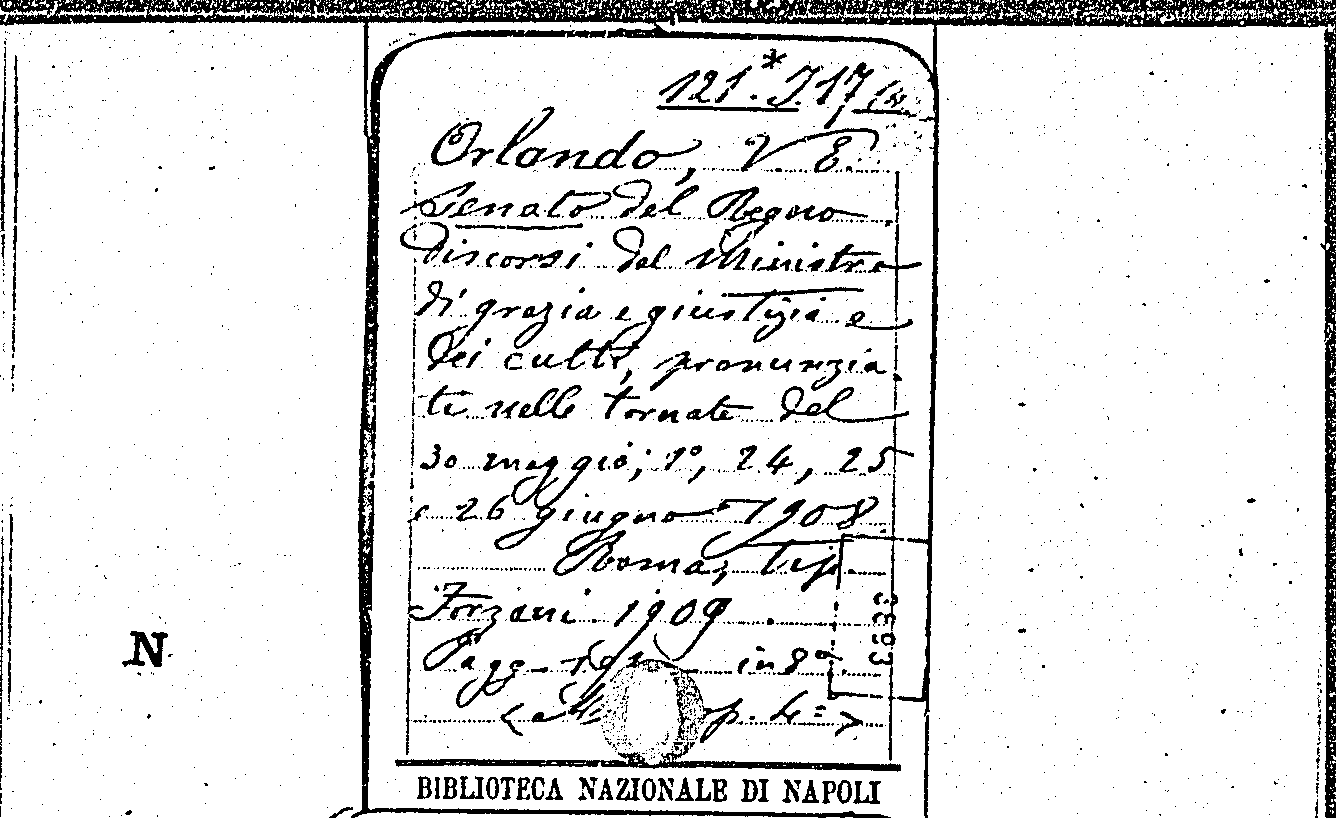 121.* J. 17
Orlando, V. E.
Senato del Regno.
discorsi del Ministro
di grazia e giustizia e
dei culti, pronunzia.
ti nelle tornate del
30 maggio; 1º, 24, 25
e 26 giugno 1908.
Roma, tip.
Forzani 1909.
Pagg. in 8º.
p. 4
3693
N
BIBLIOTECA NAZIONALE DI NAPOLI